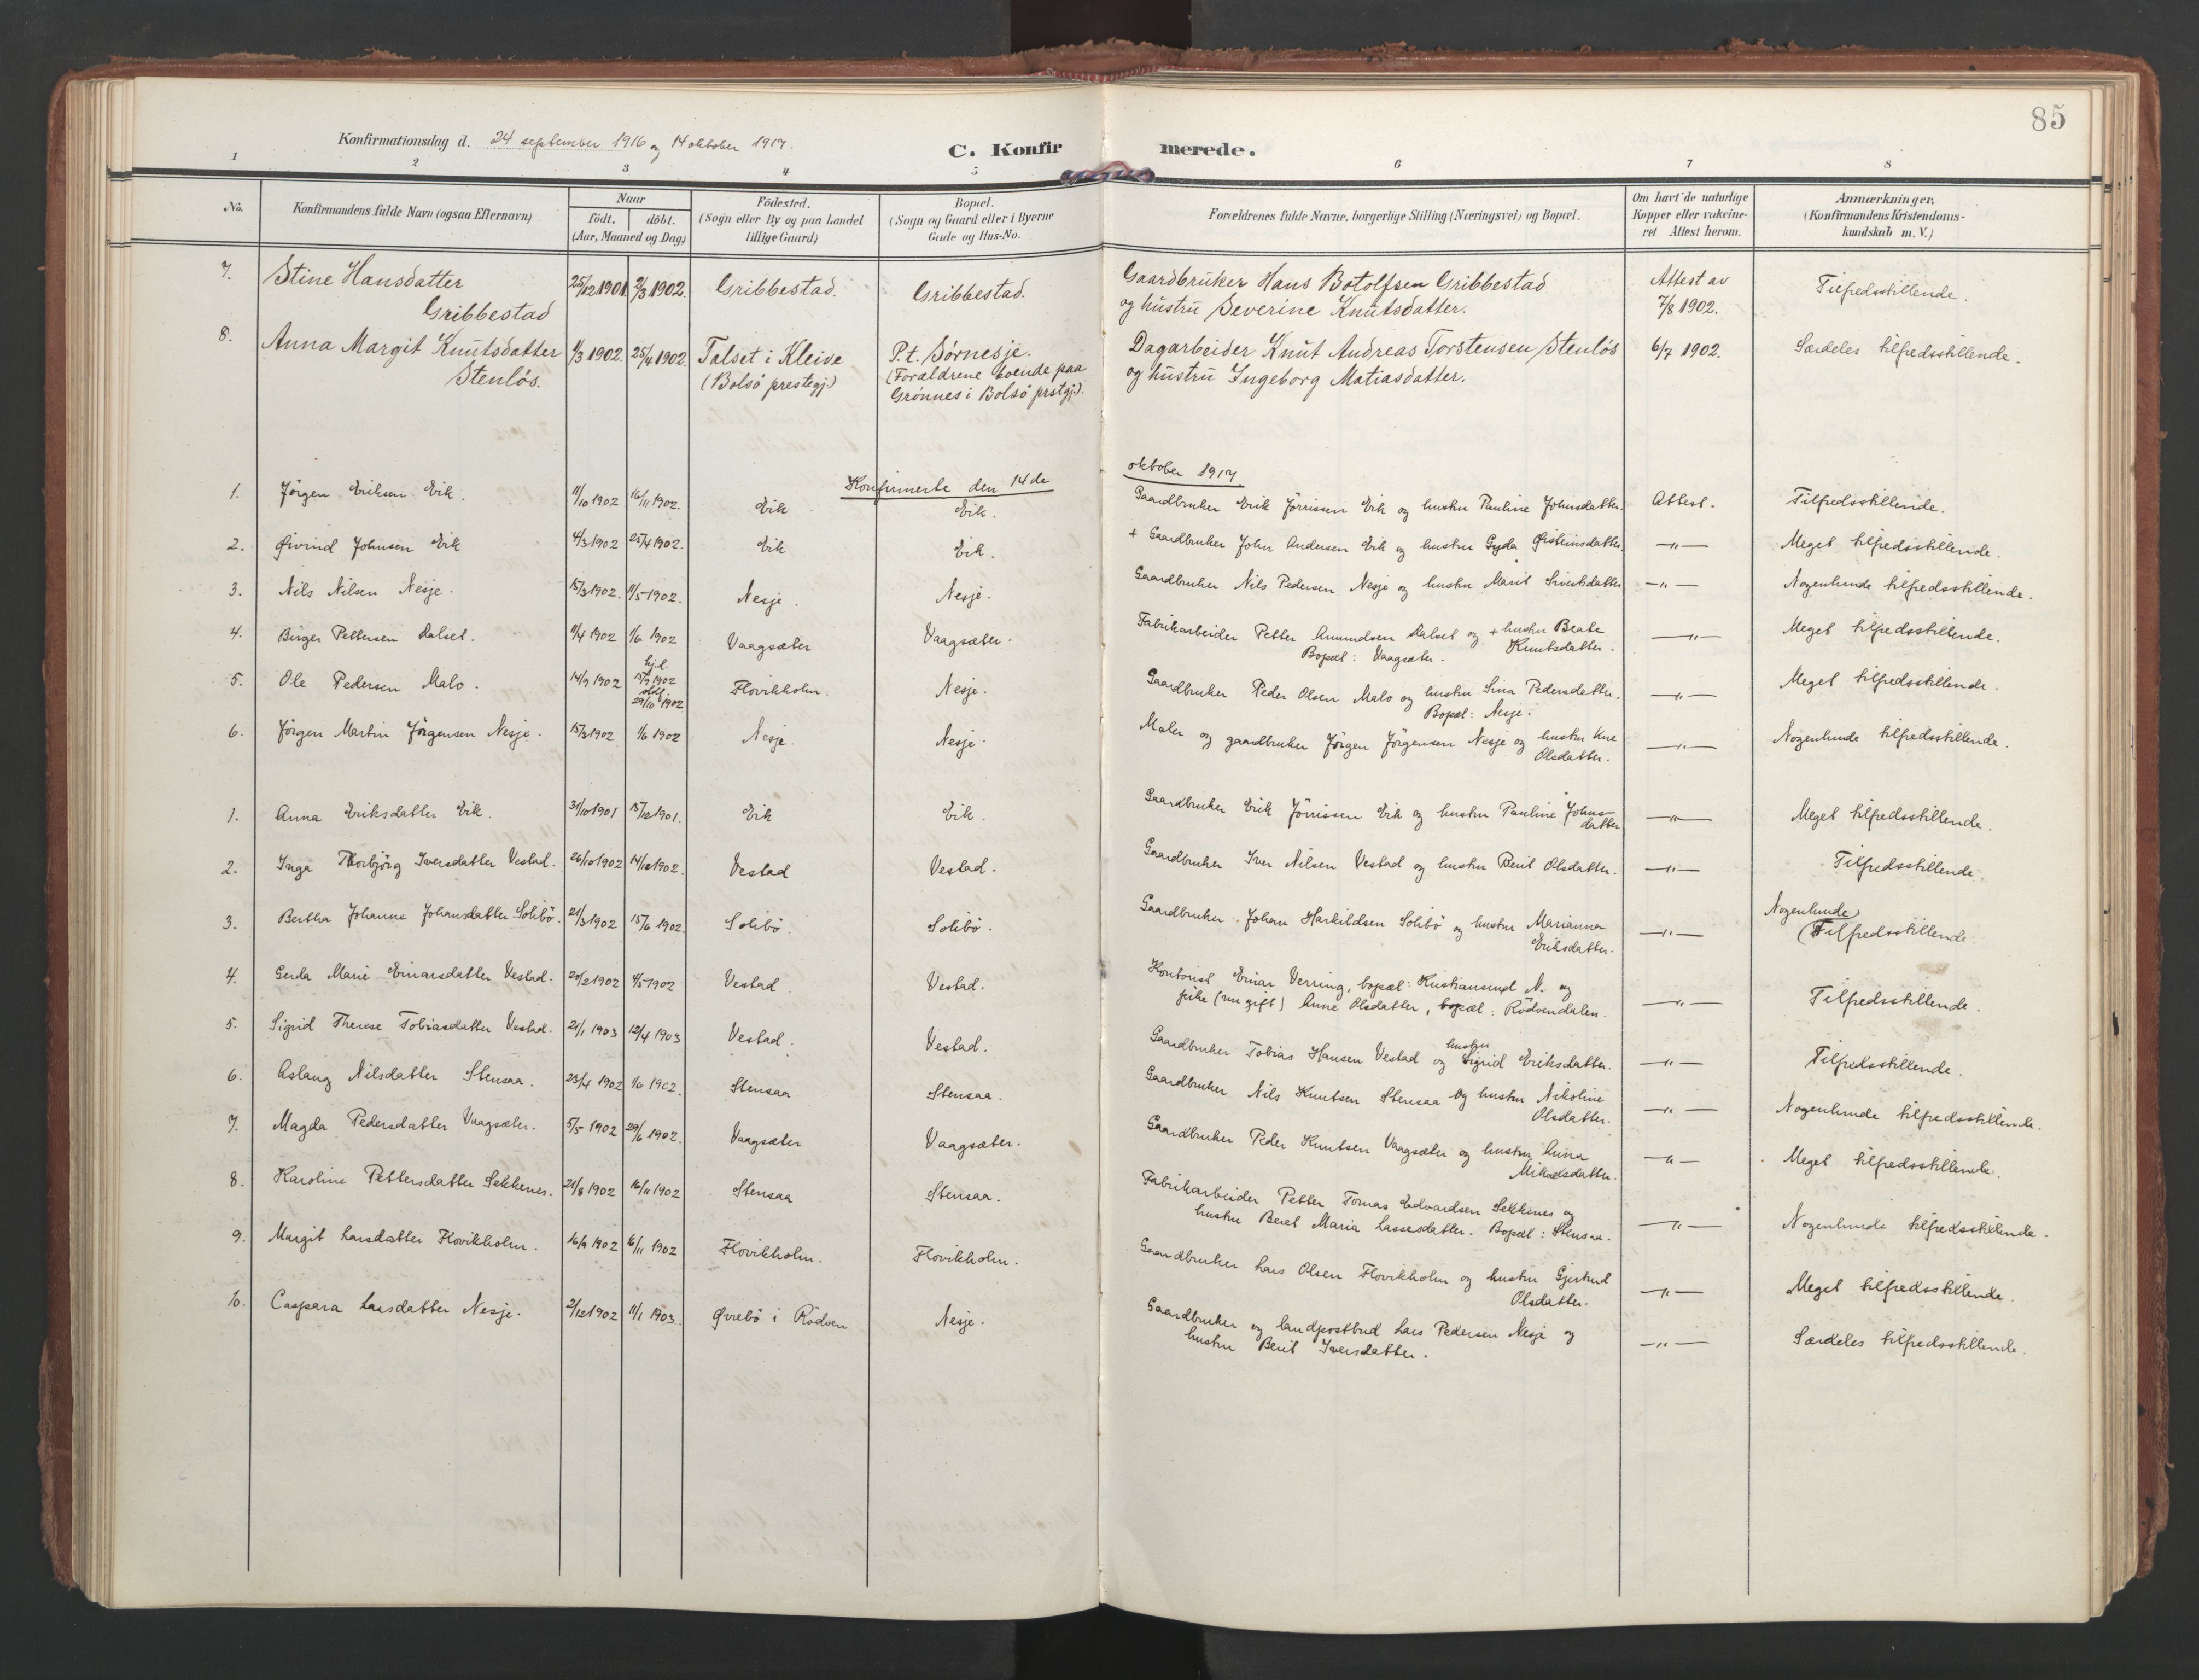 85
Konfirmationsdag d. 24 september 1916 og 14 oktober 1917.
C. Konfirmerede.
1 2 3 4 5 6 7 8
No.
Konfirmandens fulde Navn (ogsaa Efternavn)
Naar
født. døbt.
(Aar, Maaned og Dag)
Fødested.
(Sogn eller By og paa Landet
tillige Gaard)
Bopæl.
(Sogn og Gaard eller i Byerne
Gade og Hus-No.
Forældrenes fulde Navne, borgerlige Stilling (Næringsvei) og Bopæl.
Om havt de naturlige
Kopper eller vakcine-
ret Attest herom.
Anmærkninger.
(Konfirmandens Kristendoms-
kundskab m. V.)
7. Stine Hansdatter 25/12 1901 2/3 1902. Gribbestad. Gribbestad. Gaardbruker Hans Botolfsen Gribbestad Attest av Tilfredsstillende.
Gribbestad og hustru Severine Knutsdatter. 7/8 1902.
8. Anna Margit Knutsdatter 1/3 1902. 25/4 1902. Talset i Kleive P.t. Sørnesje. Dagarbeider Knut Andreas Torstensen Stenløs 6/7 1902. Særdeles tilfredsstillende.
Stenløs. (Bolsø prestegj.) (Forældrene boende paa og hustru Ingeborg Matiasdatter.
Grønnes i Bolsø prstgj.).
Konfirmerte den 14de oktober 1917
1. Jørgen Eriksen Eik. 11/10 1902 16/11 1902. Eik Eik. Gaardbruker Erik Jørrissen Eik og hustru Pauline Johnsdatter. Attest. Tilfredsstillende.
2. Øivind Johnsen Eik 4/3 1902 25/4 1902. Eik Eik. + Gaardbruker John Andersen Eik og hustru Gyda Øisteinsdatter. —"— Meget tilfredsstillende.
3. Nils Nilsen Nesje. 15/3 1902. 11/5 1902. Nesje. Nesje. Gaardbruker Nils Pedersen Nesje og hustru Marit Sivertsdatter —"— Nogenlunde tilfredsstillende.
4. Birger Pettersen Dalset. 11/4 1902 1/6 1902 Vaagsæter Vaagsæter. Fabrikarbeider Petter Amundsen Dalset og + hustru Beate —"— Meget tilfredsstillende.
Knutsdatter.
Bopæl: Vaagsæter.
5. Ole Pedersen Malo. 14/9 1902 hj.d. 15/9 1902 stdf. 29/10 1902 Flovikholm. Nesje. Gaardbruker Peder Olsen Malo og hustru Sina Pedersdatter. —"— Meget tilfredsstillende.
Bopæl: Nesje.
6. Jørgen Martin Jørgensen Nesje. 15/3 1902 1/6 1902 Nesje. Nesje. Maler og gaardbruker Jørgen Jørgensen Nesje og hustru Ane —"— Nogenlunde tilfredsstillende.
Olsdatter.
1. Anna Eriksdatter Eik. 31/10 1901 15/12 1901. Eik Eik. Gaardbruker Erik Jørrissen Eik og hustru Pauline Johns- —"— Meget tilfredsstillende.
datter
2. Inga Thorbjørg Iversdatter Vestad. 26/10 1902 14/12 1902. Vestad Vestad. Gaardbruker Iver Nilsen Vestad og hustru Berit Olsdatter. —"— Tilfredsstillende.
3. Bertha Johanne Johansdatter Solibø. 21/3 1902 15/6 1902. Solibø. Solibø. Gaardbruker Johan Harkildsen Solibø og hustru Marianna —"— Nogenlunde
Eriksdatter. (Tilfredsstillende.
4. Gerda Marie Einarsdatter Vestad. 20/2 1902 4/5 1902 Vestad Vestad. Kontorist Einar Verring, bopæl: Kristiansund N. og —"— Tilfredsstillende.
pike (un gift) Anne Olsdatter, bopæl: Rødvendalen.
5. Sigrid Therese Tobiasdatter Vestad. 21/1 1903 12/4 1903 Vestad. Vestad. Gaardbruker Tobias Hansen Vestad og hustru Sigrid Eriksdatter. —"— Tilfredsstillende.
6. Aslaug Nilsdatter Stensaa. 23/4 1902 1/6 1902 Stensaa Stensaa. Gaardbruker Nils Knutsen Stensaa og hustru Nikoline —"— Nogenlunde tilfredsstillende.
Olsdatter.
7. Magda Pedersdatter Vaagsæter. 5/5 1902 29/6 1902. Vaagsæter Vaagsæter. Gaardbruker Peder Knutsen Vaagsæter og hustru Anna —"— Meget tilfredsstillende.
Mikaelsdatter.
8. Karoline Pettersdatter Sekkenes. 21/8 1902 16/11 1902 Stensaa Stensaa. Fabrikarbeider Petter Tomas Edvardsen Sekkenes og —"— Nogenlunde tilfredsstillende.
hustru Beret Maria Lassesdatter. Bopæl: Stensaa.
9. Margit Larsdatter Flovikholm. 16/9 1902 16/11 1902 Flovikholm. Flovikholm. Gaardbruker Lars Olsen Flovikholm og hustru Gjertrud —"— Meget tilfredsstillende.
Olsdatter.
10. Caspara Larsdatter Nesje. 2/12 1902 11/1 1903. Øvrebø i Rødven Nesje. Gaardbruker og landpostbud Lars Pedersen Nesje og —"— Særdeles tilfredsstillende.
hustru Berit Iversdatter.